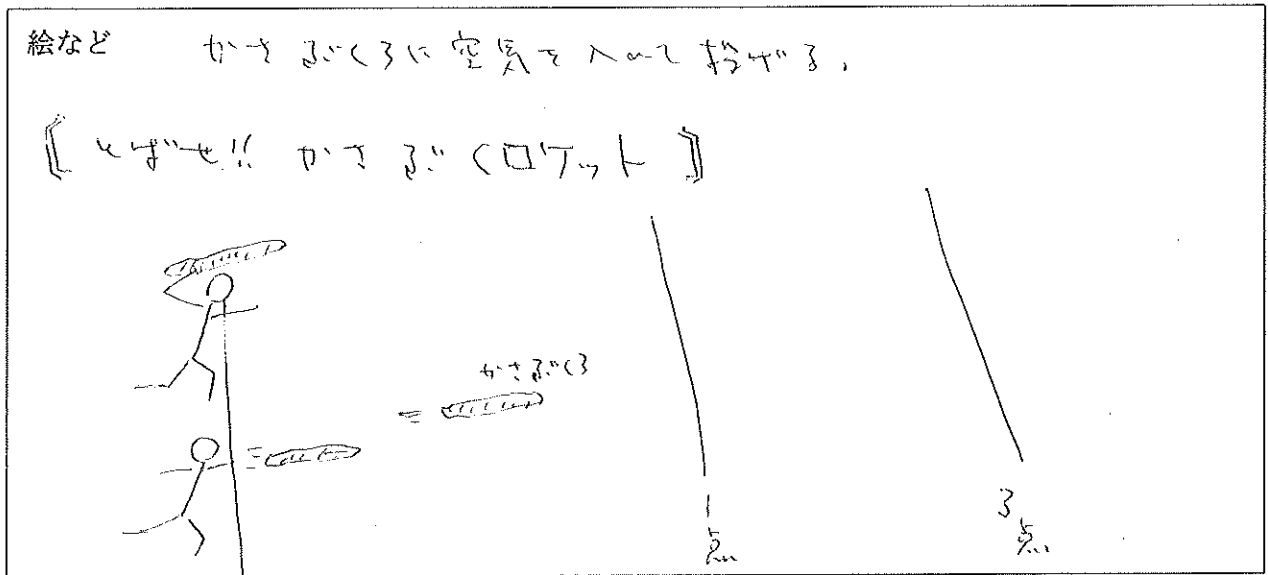 絵など
かさぶくろに空気を入れて投げる。
〚とばせ!! かさぶくロケット〛
かさぶくろ
1点
3点